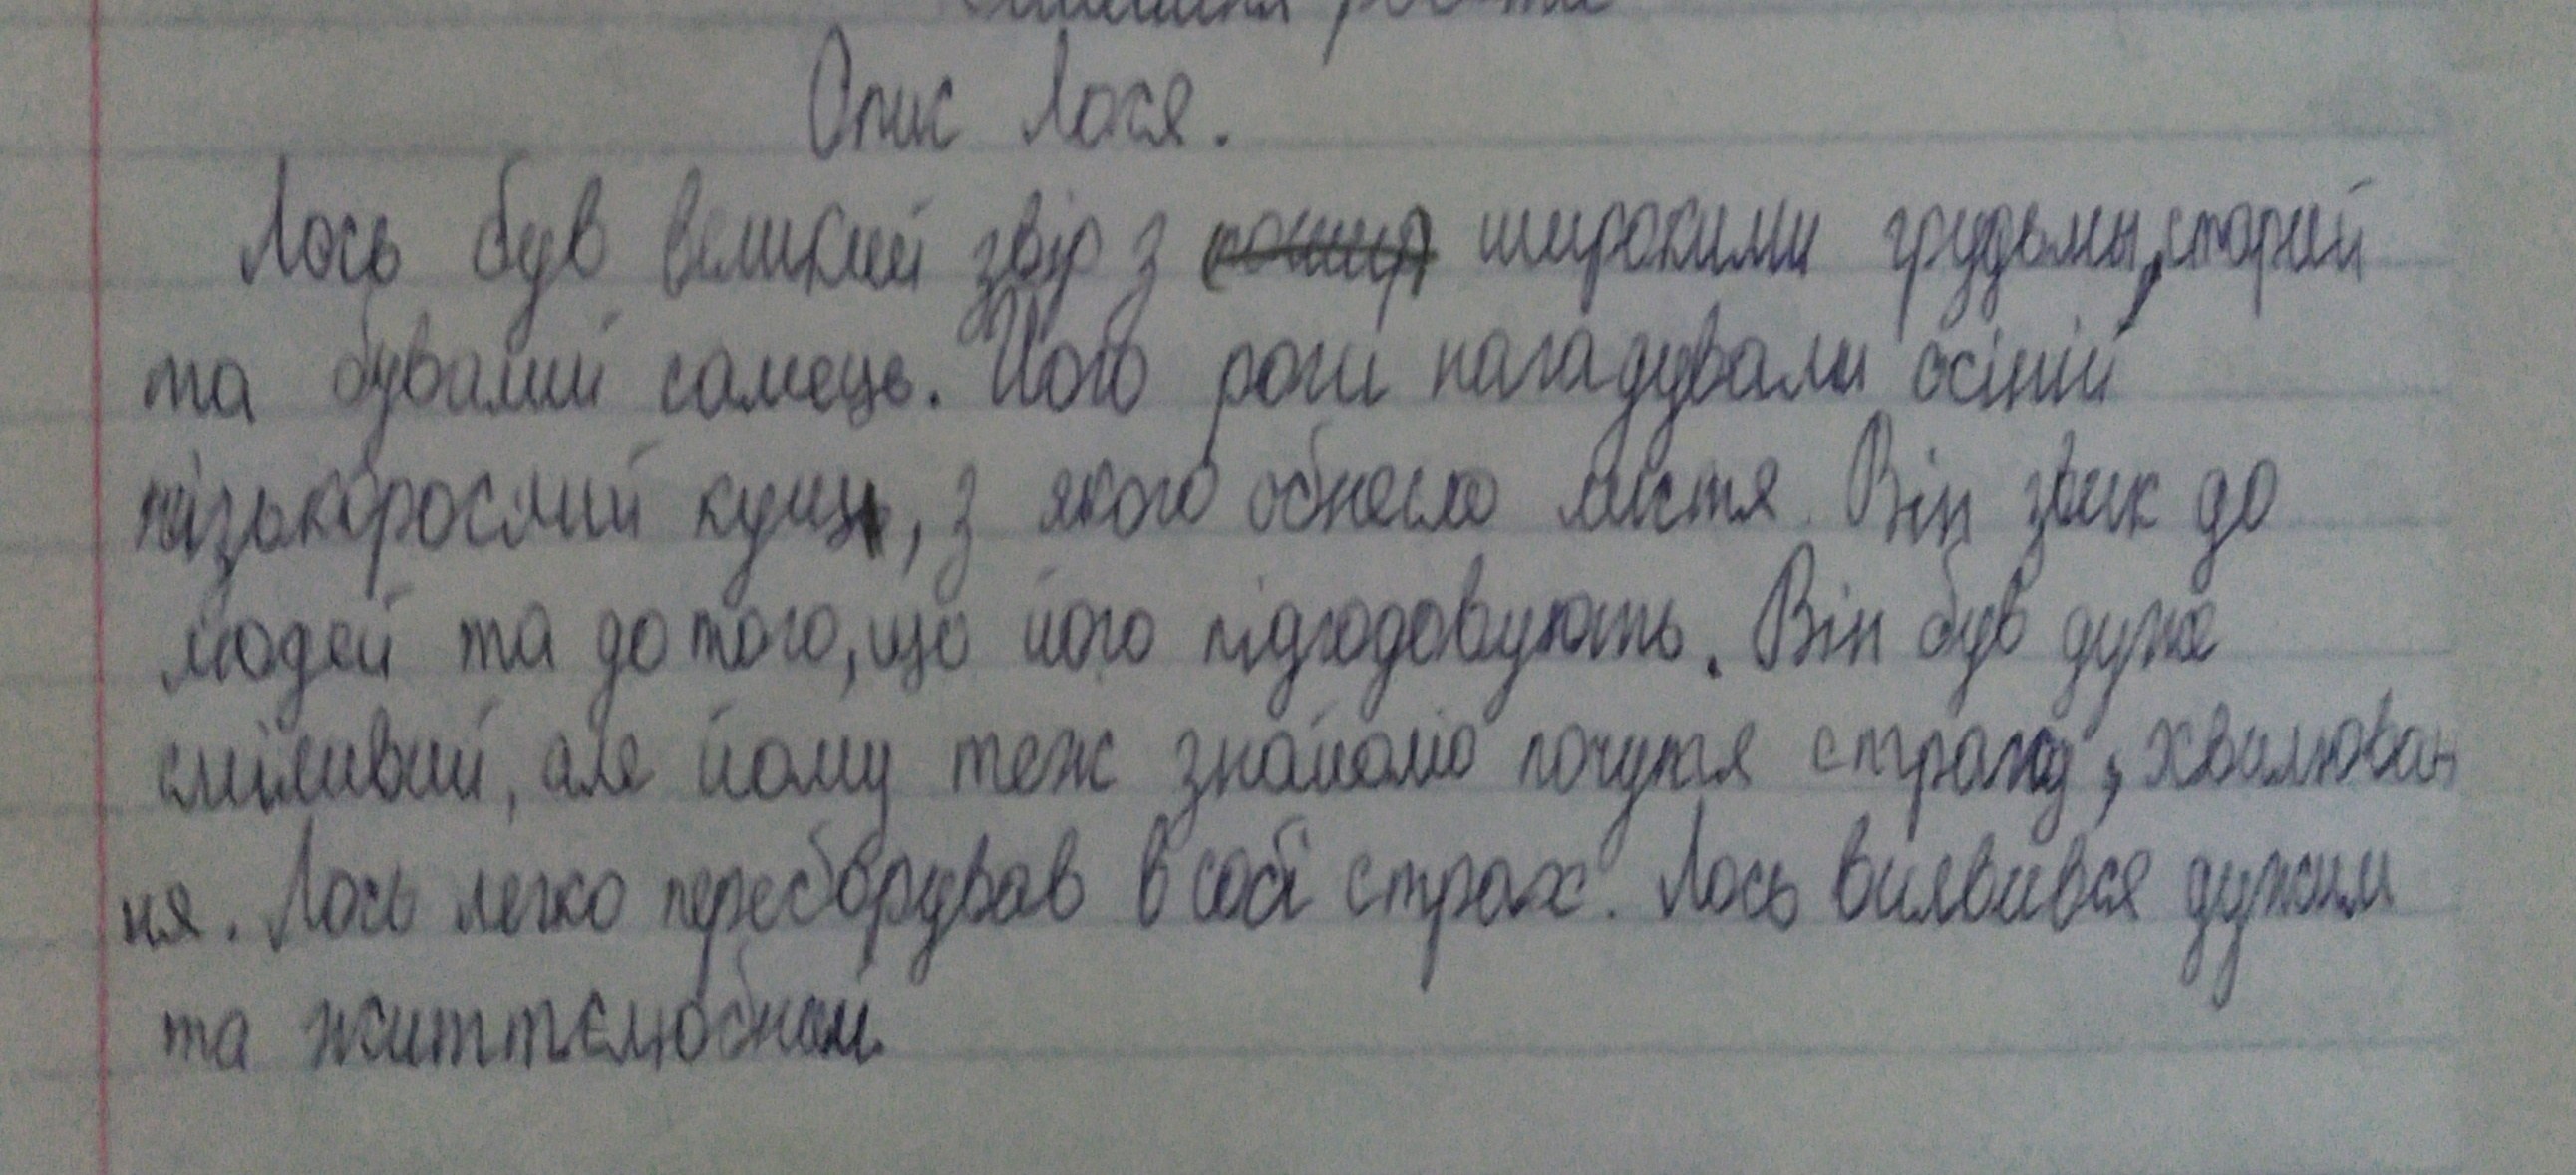 Опис Лося.
Лось був великий звір з широкими грудьми, старий
та бувалий самець. Його роги нагадували осіній
низькорослий кущ, з якого обнесло листя. Він звик до
людей та до того, що його підгодовують. Він був дуже
сміливий, але йому теж знайомо почуття страху, хвилюван
ня. Лось легко переборував в собі страх. Лось виявився дужим
та життєлюбном.